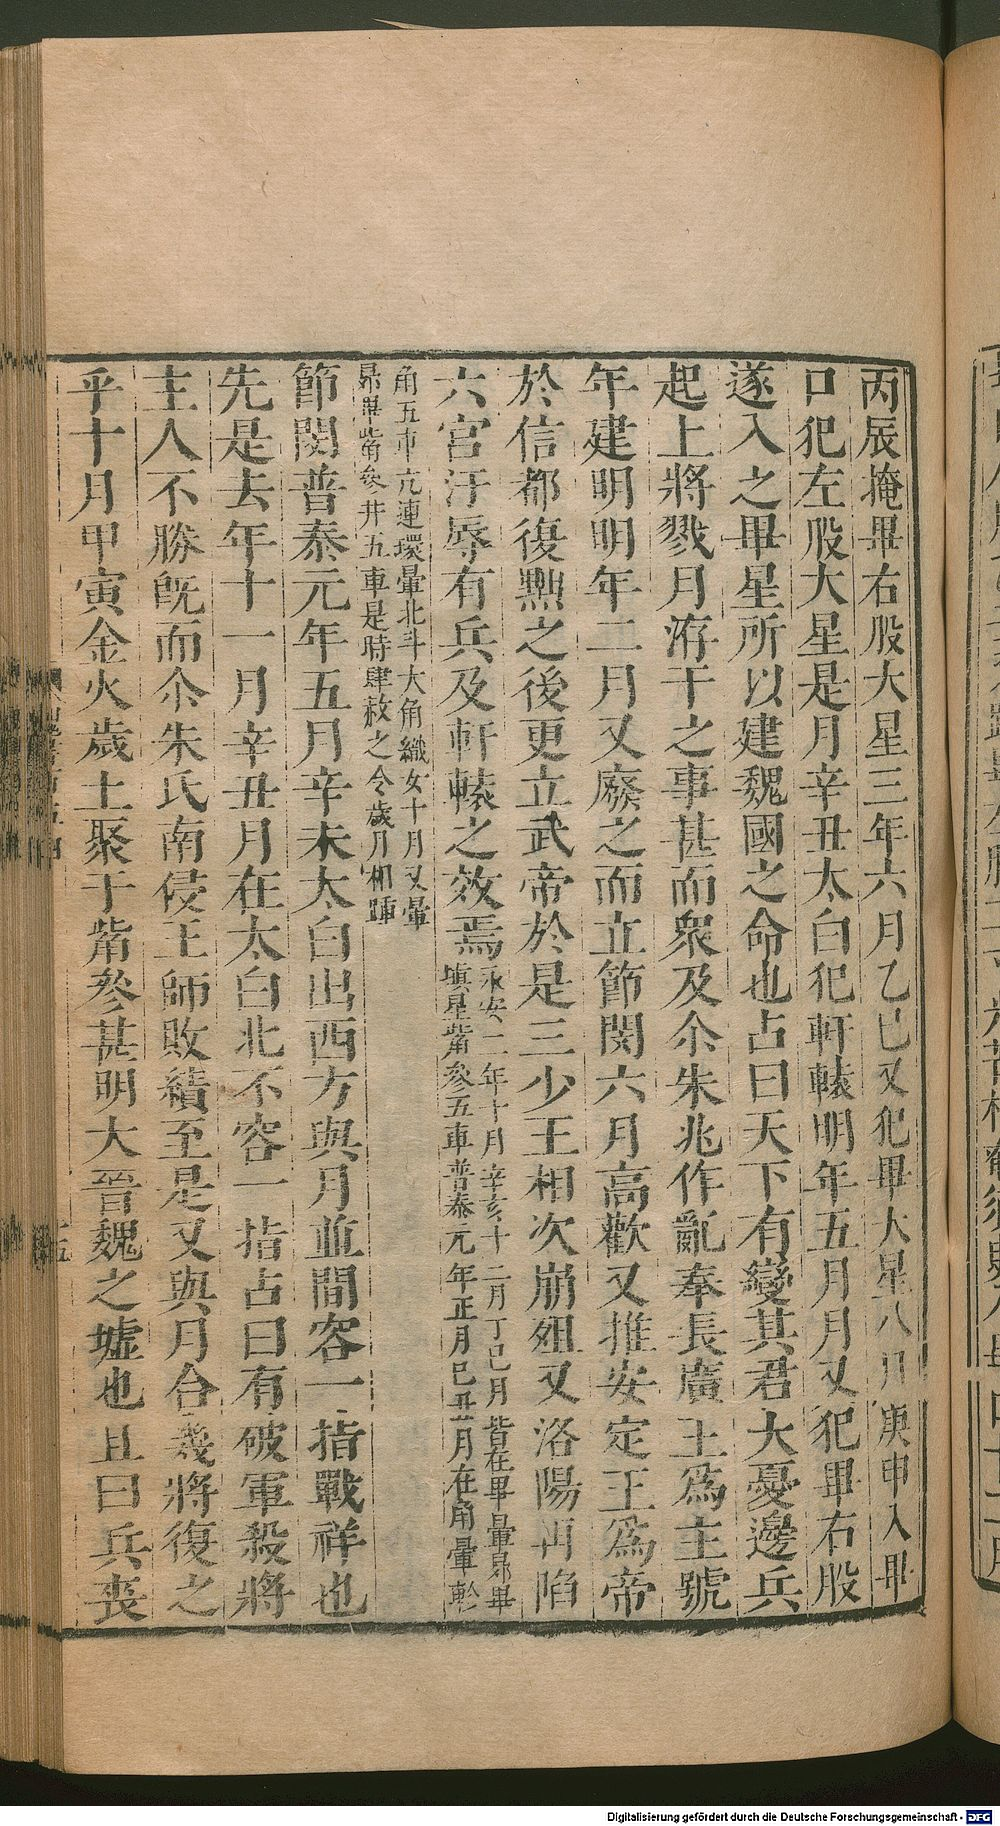 丙辰掩畢右股大星三年六月乙巳又犯畢大星八月庚申入畢
口犯左股大星是月辛丑太白犯軒轅明年五月月又犯畢右股
遂入之畢星所以建魏國之命也占曰天下有變其君大憂邊兵
起上將戮月洊干之事甚而衆及尒朱兆作亂奉長廣王爲主號
年建明明年二月又廢之而立節閔六月高歡又推安定王爲帝
於信都復黜之後更立武帝於是三少王相次崩殂又洛陽再陷
六宮汙辱有兵及軒轅之效焉
永安二年十月辛亥十二月丁巳月皆在畢暈昴畢
塡星觜參五車普泰元年正月己丑月在角暈軫
角五車亢連環暈北斗大角織女十月又暈
昴畢觜參井五車是時肆赦之令歲月相踵
節閔普泰元年五月辛未太白出西方與月並間容一指戰祥也
先是去年十一月辛丑月在太白北不容一指占曰有破軍殺將
主人不勝旣而尒朱氏南侵王師敗績至是又與月合義將復之
乎十月甲寅金火歲土聚于觜參甚明大晉魏之墟也且曰兵喪
五
Digitalisierung gefördert durch die Deutsche Forschungsgemeinschaft - DFG